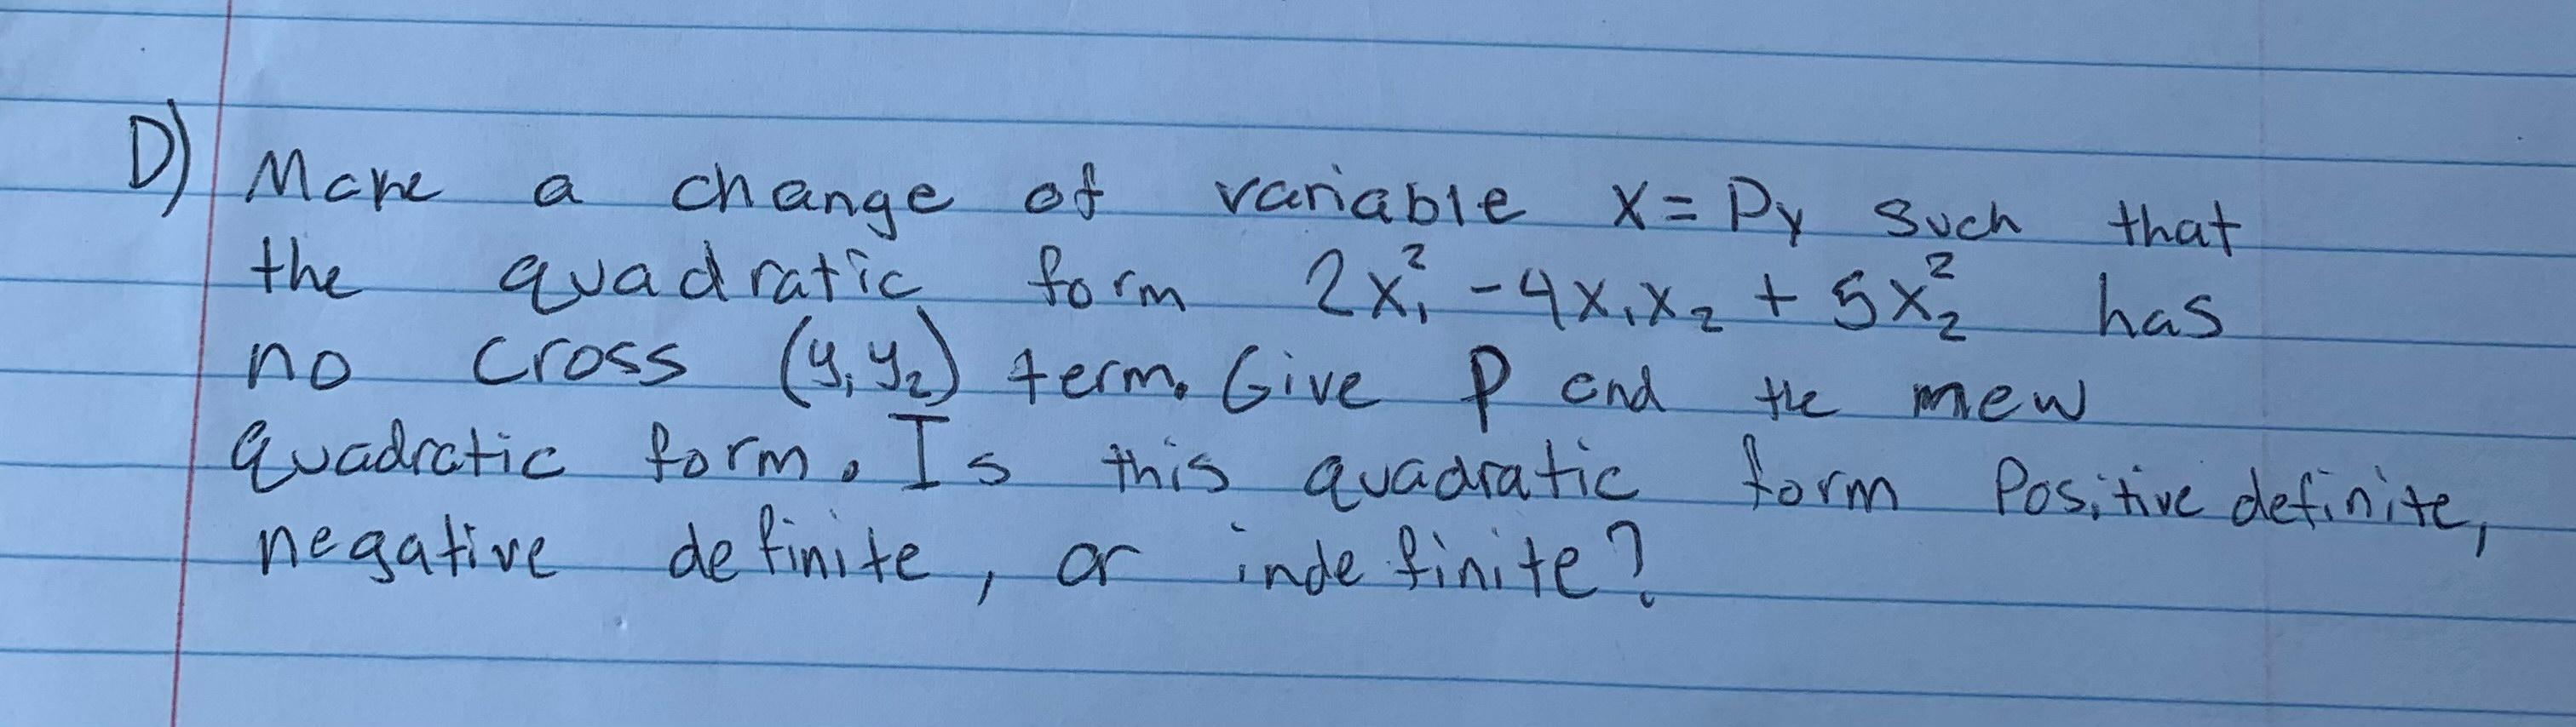 D) Make a change of variable x = Py such that
the quadratic form 2x₁² - 4x₁x₂ + 5x₂² has
no cross (y₁y₂) term. Give P and the mew
quadratic form. Is this quadratic form Positive definite,
negative definite, or indefinite?